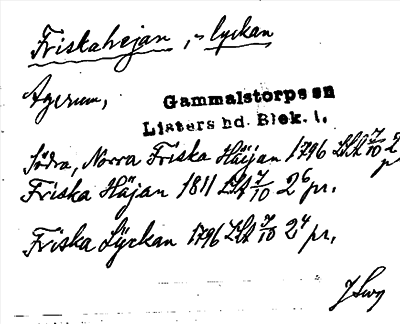 Friskahejan, -lyckan
Agerum,
Gammalstorps sn
Listers hd. Blek. l.
Södra, Norra Friska Häijan 1796 LSA 7/10 2
Friska Häjan 1811 LSA 7/10 2⁶ pr.
Friska Lyckan 1796 LSA 7/10 2⁴ pr.